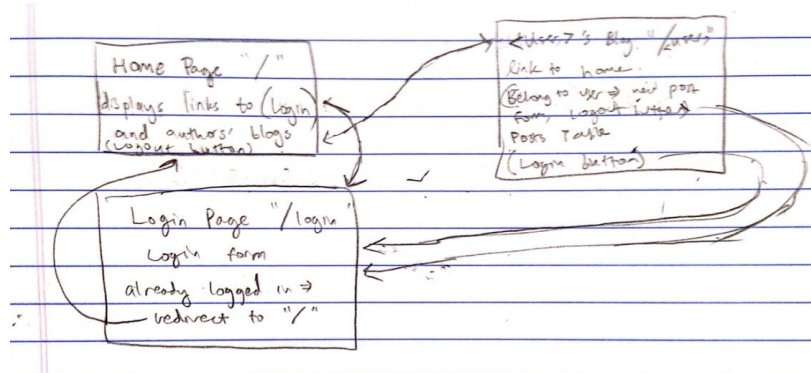 Home Page "/"
displays links to (Login)
and authors' blogs
(Logout button)
<user>'s Blog "/<user>"
link to home.
(Belong to user ⇒ new post
form, Logout button)
Posts Table
(Login button)
Login Page "/login"
Login form
already logged in ⇒
redirect to "/"